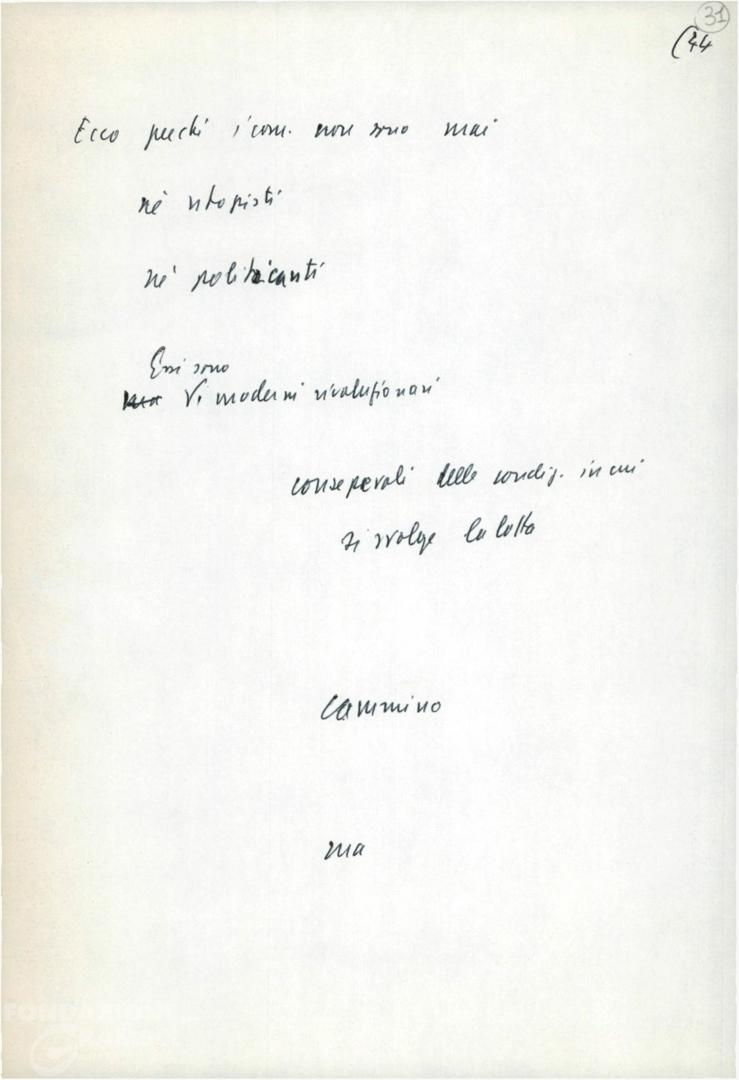 31
(44
Ecco perchi i com. non sono mai
nè utopisti
nè politicanti
Essi sono
i moderni rivoluzionari
consapevoli delle condiz. in cui
si svolge la lotta
Cammino
ma
FONDAZIONE